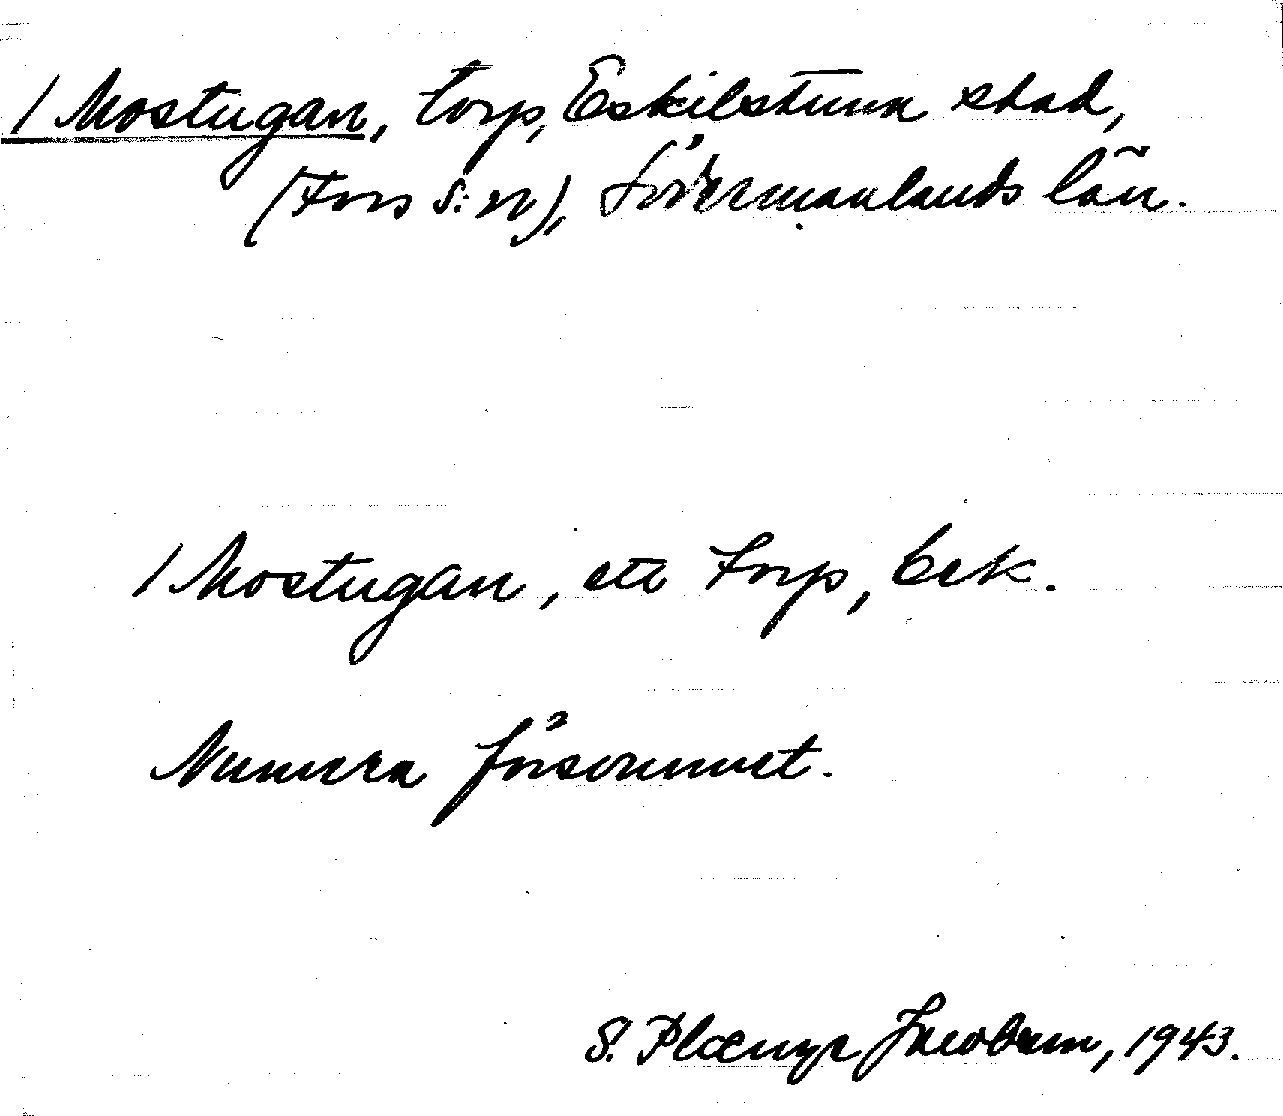 / Mostugan, torp, Eskilstuna stad,
(Fors s:n), Södermanlands län.
/ Mostugan, ett torp, bek.
Numera försvunnet.
S. Plænge Jacobson, 1943.